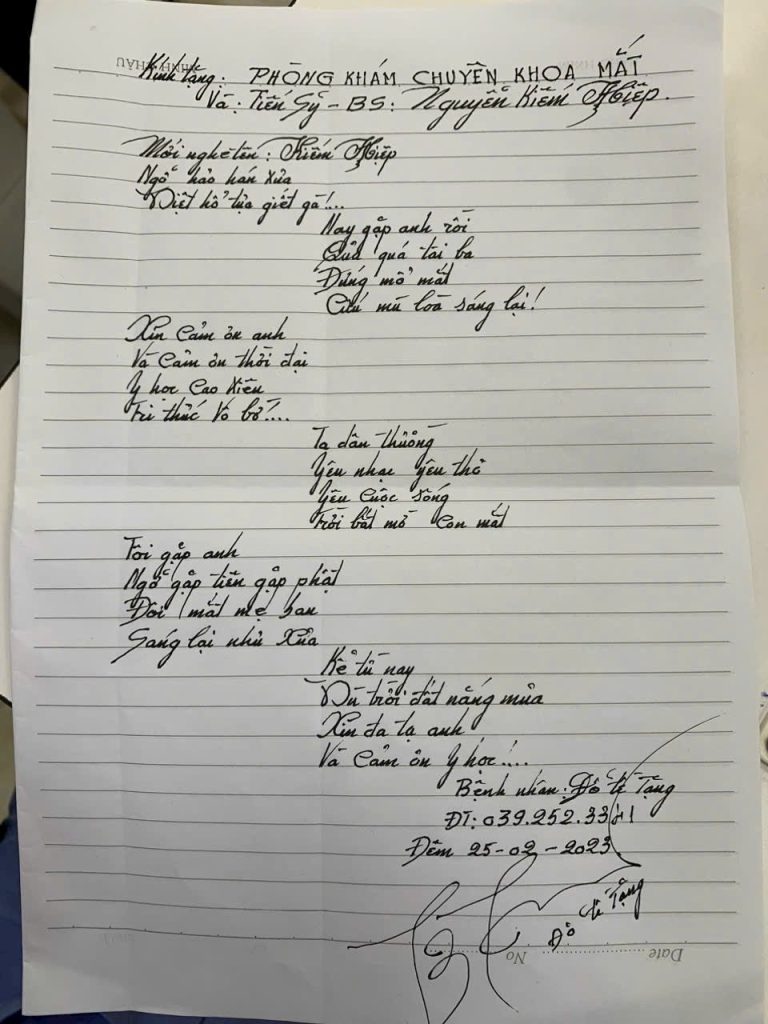 Kính tặng: PHÒNG KHÁM CHUYÊN KHOA MẮT
Và: Tiến Sỹ - BS: Nguyễn Kiếm Hiệp.
Mới nghe tên: Kiếm Hiệp
Ngỡ hảo hán xưa
Diệt hổ tựa giết gà!...
Nay gặp anh rồi
Quả quá tài ba
Đứng mổ mắt
Cứu mù loà sáng lại!
Xin cảm ơn anh
Và cảm ơn thời đại
Y học cao siêu
Tri thức vô bờ....
Ta dân thường
Yêu nhạc yêu thơ
Yêu cuộc sống
Trời bắt mờ con mắt
Tôi gặp anh
Ngỡ gặp tiên gặp phật
Đôi mắt mẹ ban
Sáng lại như xưa
Kể từ nay
Dù trời đất nắng mưa
Xin đa tạ anh
Và cảm ơn y học!....
Bệnh nhân: Đỗ Tặng
ĐT: 039.252.33
Đêm 25-02-2023
Đỗ Tặng
Date
No